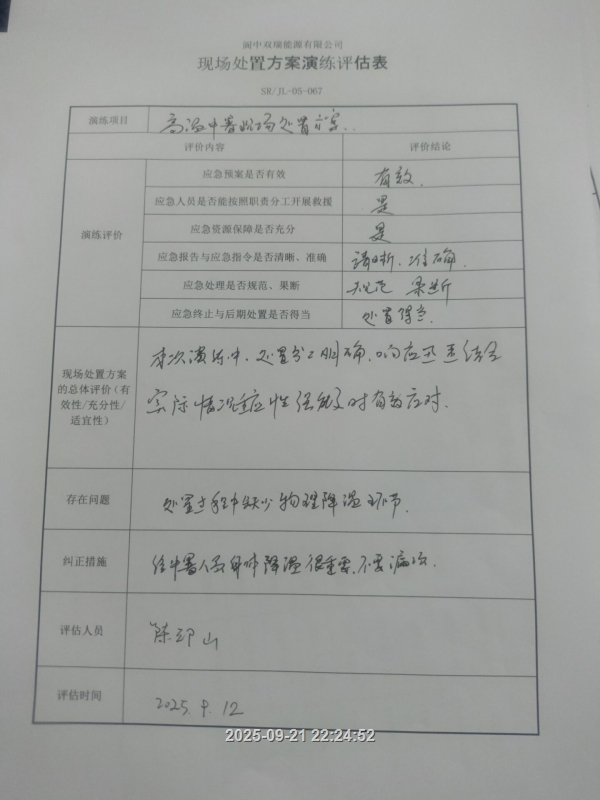 阆中双瑞能源有限公司
现场处置方案演练评估表
SR/JL-05-067
演练项目 高温中暑现场处置方案.
评价内容 评价结论
演练评价
应急预案是否有效 有效.
应急人员是否能按照职责分工开展救援 是
应急资源保障是否充分 是
应急报告与应急指令是否清晰、准确 清晰、准确.
应急处理是否规范、果断 规范 果断
应急终止与后期处置是否得当 处置得当.
现场处置方案的总体评价(有效性/充分性/适宜性)
本次演练中,处置分工明确,响应迅速结合
实际情况适应性强能及时有效应对.
存在问题 处置过程中缺少物理降温环节.
纠正措施 给中暑人员身体降温很重要,不要漏项.
评估人员 陈 山
评估时间 2025.9.12
2025-09-21 22:24:52